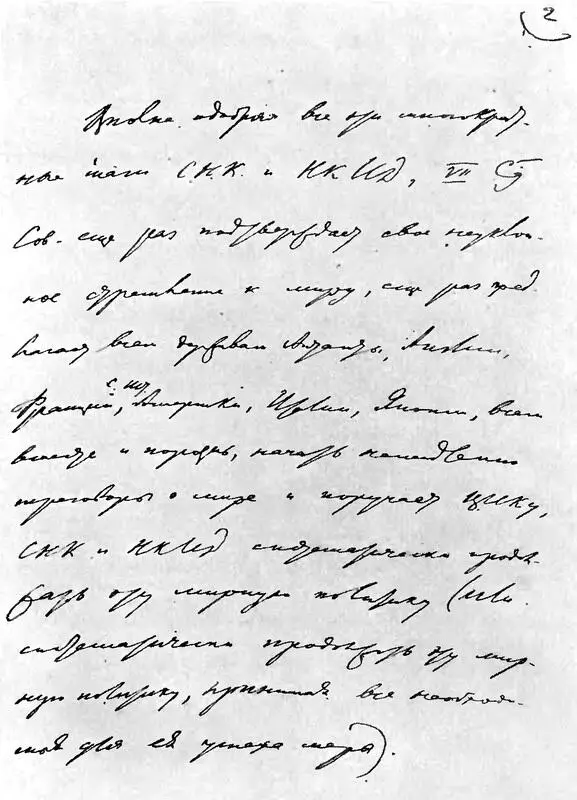 2
Вполне одобряя все эти многократ-
ные шаги С.Н.К. и НКИД, VII Съ
Сов. еще раз подтверждает свое неуклон-
ное стремление к миру, еще раз пред-
лагает всем державам Антанты, Англии,
Франции, С. Шт. Америки, Италии, Японии, всем
вместе и порознь, начать немедленно
переговоры о мире и поручает ЦИКу,
СНК и НКИД систематически продол-
жать эту мирную политику (или
систематически продолжать эту мир-
ную политику, принимая все необходи-
мые для ее успеха меры).